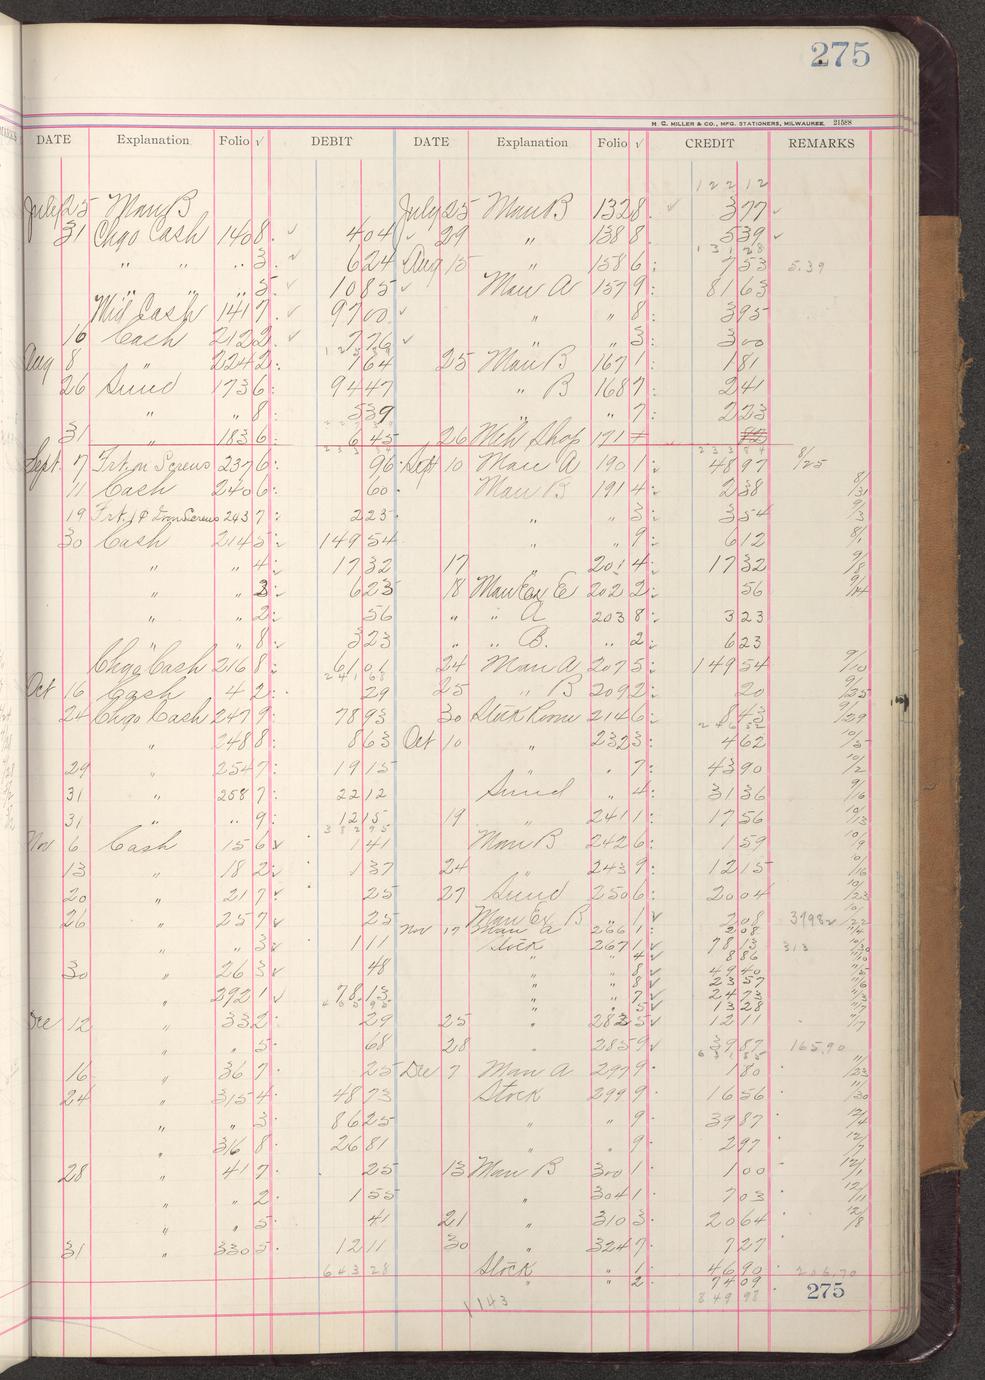 275
H. G. MILLER & CO., MFG. STATIONERS, MILWAUKEE 21588
DATE Explanation Folio √ DEBIT DATE Explanation Folio √ CREDIT REMARKS
122 12
July 25 Man B July 25 Man B 132 8 377
31 Chgo Cash 140 8 404 29 " 138 8 539
131 28
" " " 3 624 Aug 15 " 158 6 753 5.39
" " " 5 1085 Man A 157 9 8163
Mid Cash 141 7 9700 " " 8 395
16 Cash 212 2 776 " " 3 300
Aug 8 " 224 2 764 25 Man B 167 1 181
26 Sund 173 6 9447 " B 168 7 241
" " 8 539 " " 7 223
31 " 183 6 645 26 Mch Shop 171 82
233 84
Sept 7 Frt on Screws 237 6 96 Sept 10 Man A 190 1 4897 8/25
11 Cash 240 6 60 Man B 191 4 238 8/31
19 Frt 243 7 225 " " 3 354 9/3
30 Cash 214 5 149 54 " " 9 612 8/1
" " 4 1732 17 " 201 4 1732 9/8
" " 3 623 18 Man Ex E 202 2 56 9/14
" " 2 56 " " A 203 8 323
" " 8 323 " " B. " 2 623
Chgo Cash 216 8 6101 24 Man A 207 5 149 54 9/10
241 68
Oct 16 Cash 4 2 29 25 " B 209 2 20 9/25
24 Chgo Cash 247 9 7893 30 Stock Room 214 6 843 9/29
246 32
" 248 8 863 Oct 10 " 232 3 462 10/5
29 " 254 7 1915 " " 7 4390 10/2
31 " 258 7 2212 Sund " 4 3136 9/16
31 " " 9 1215 19 " 241 1 1756 10/13
382 95
Nov 6 Cash 15 6 141 Man B 242 6 159 10/9
13 " 18 2 137 24 " 243 9 1215 10/16
20 " 21 7 25 27 Sund 250 6 2004 10/23
26 " 25 7 25 Man Ex B " 1 208 39982 10/22
Nov 17 Man A 266 1 208 11/4
" " 3 111 Stock 267 1 7813 313 10/30
" " 4 886 11/10
30 " 26 3 48 " " 8 4940 11/5
" " 8 2357 11/6
" 292 1 7813 " " 7 2473 11/3
485 95 " " 5 1328 11/7
Dec 12 " 33 2 29 25 " 282 5 1211 11/17
" " 5 68 28 " 285 9 3987 165.90
631 85
16 " 36 7 25 Dec 7 Man A 297 9 180 11/23
24 " 315 4 4873 Stock 299 9 1656 11/30
" " 3 8625 " " 9 3987 12/4
" 316 8 2681 " " 9 297 12/7
28 " 41 7 25 13 Man B 300 1 100 12/1
" " 2 155 " 304 1 703 12/11
" " 5 41 21 " 310 3 2064 12/8
31 " 330 5 1211 30 " 324 7 727
643 28 Stock " 1 4690 206.70
" " 2 7409
1143 849 98
275